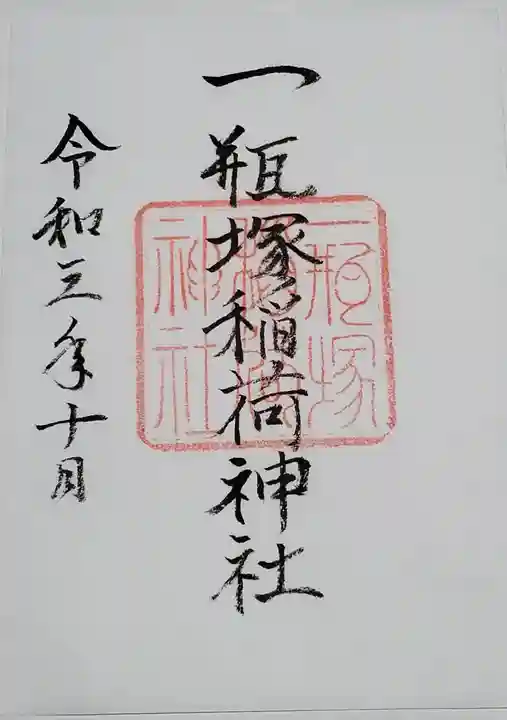 一瓶塚稲荷神社
一瓶塚
稲荷
神社
令和三年十月